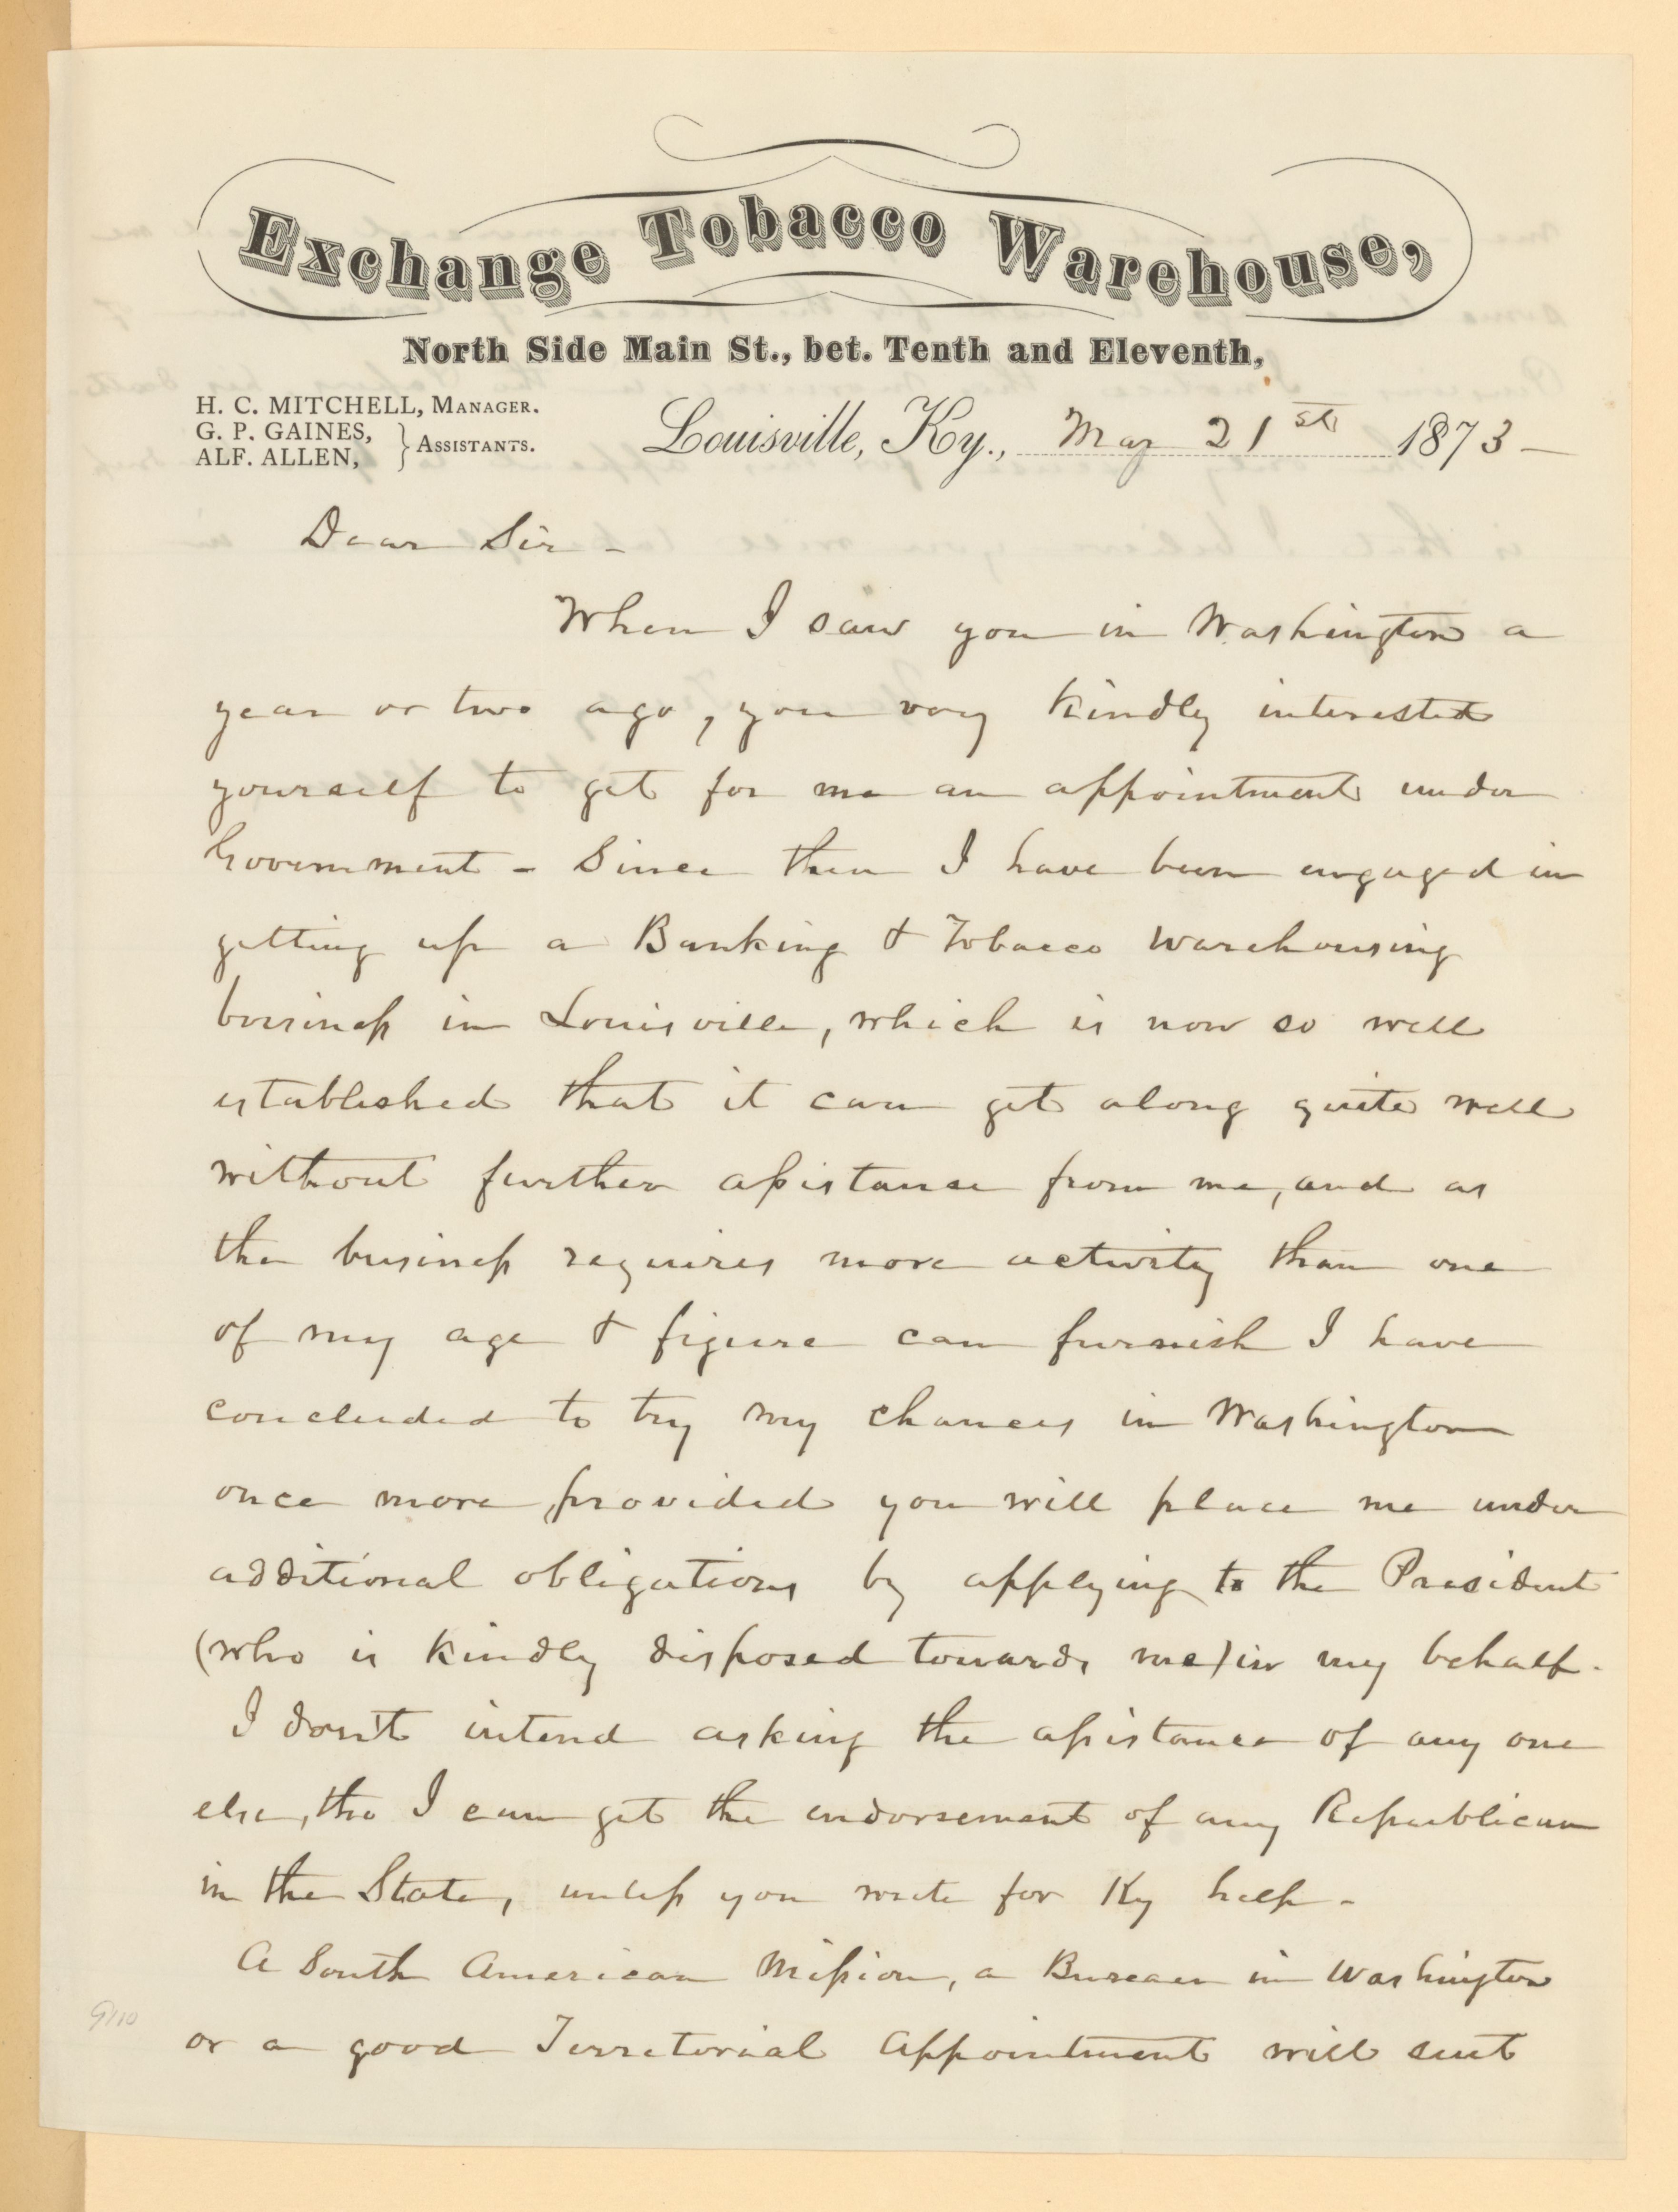 Exchange Tobacco Warehouse,
North Side Main St., bet. Tenth and Eleventh,
H. C. MITCHELL, MANAGER.
G. P. GAINES,
ALF. ALLEN, } ASSISTANTS.
Louisville, Ky., Mar 21st 1873-
Dear Sir-
When I saw you in Washington a
year or two ago, you very kindly interested
yourself to get for me an appointment under
Government - Since then I have been engaged in
getting up a Banking & Tobacco Warehousing
business in Louisville, which is now so well
established that it can get along quite well
without further assistance from me, and as
the business requires more activity than one
of my age & figure can furnish I have
concluded to try my chances in Washington
once more provided you will place me under
additional obligations by applying to the President
(who is kindly disposed towards me) in my behalf.
I don't intend asking the assistance of any one
else, tho I can get the endorsement of any Republican
in the State, unless you write for Ky help-
A South American Mission, a Bureau in Washington
or a good Territorial appointment will suit